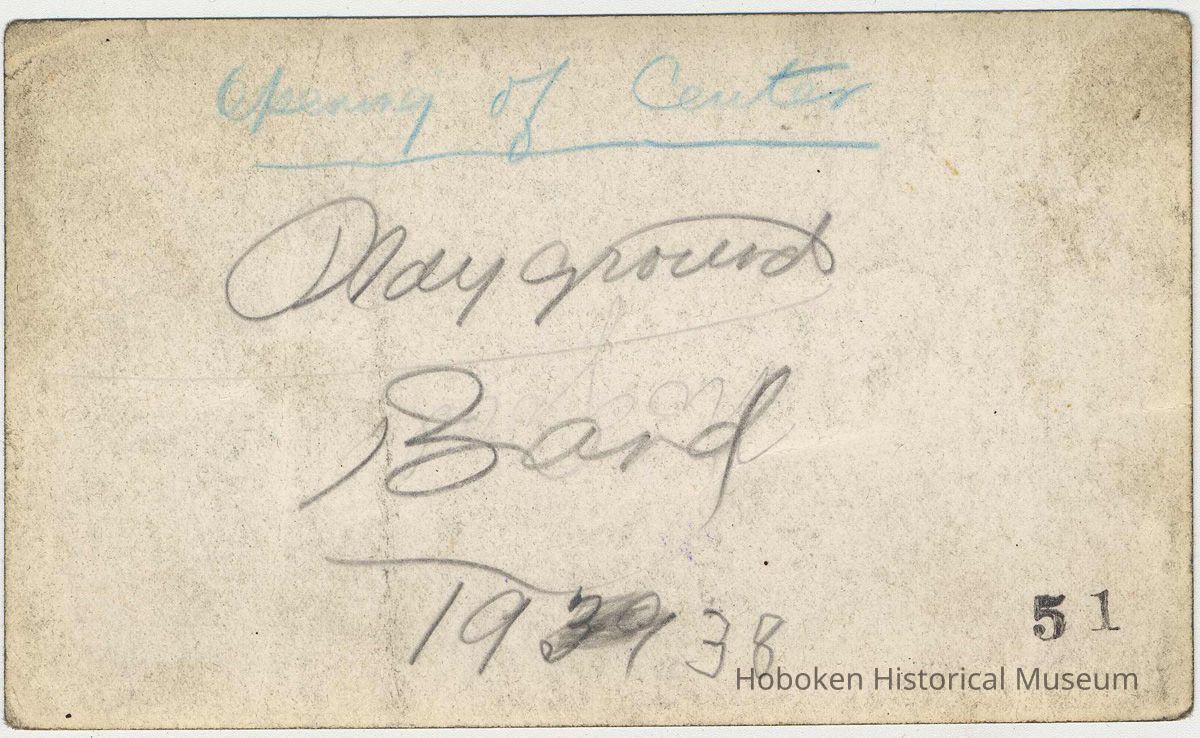 Opening of Center
Playground
Band
19 38
51
Hoboken Historical Museum